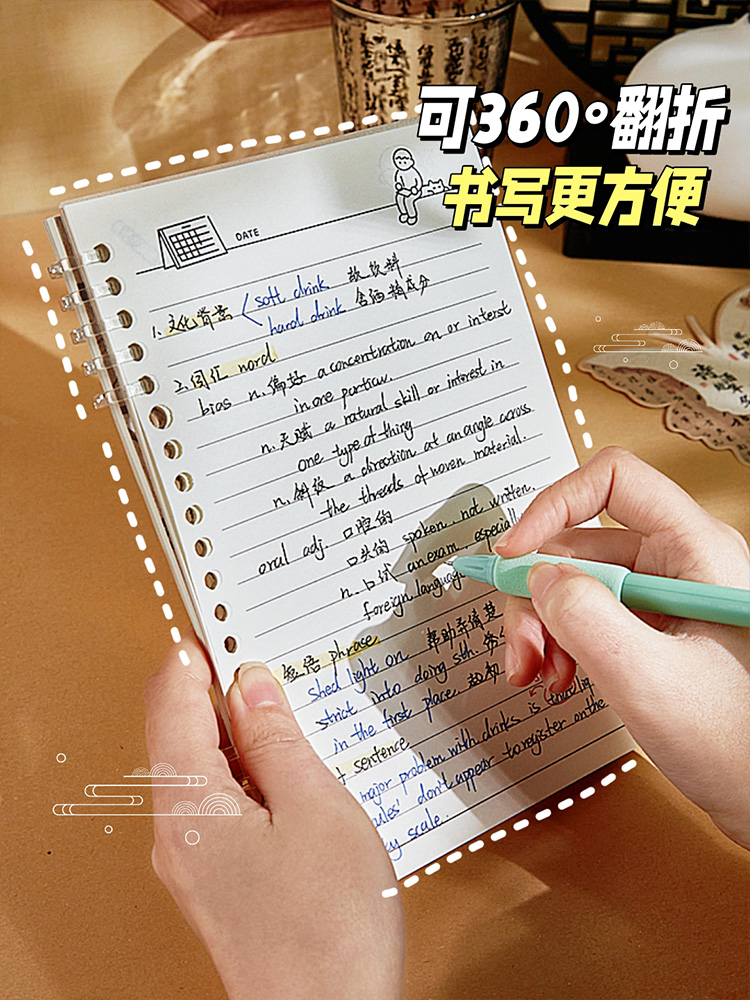 可360°翻折
书写更方便
DATE
1. 文化背景 soft drink 软饮料
hard drink 含酒精成分
2. 词汇 word
bias n. 偏好 a concentration on or interst
in one particu.
n. 天赋 a natural skill or interest in
one type of thing
n. 斜纹 a direction at an angle across
the threads of woven material.
oral adj. 口腔的
口头的 spoken, not written.
n. 口试 an exam, especiall
foreign languag
短语 phrase
shed light on 帮助弄清楚
strict into doing sth.
in the first place. 起初
sentence
major problem with drinks is
ules' don't appear to register on the
ky scale.